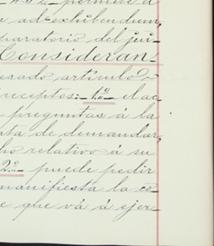 permite á
ad-exhibendum,
paratorio del jui-
Consideran-
esado artículo 2
receptos: 1º el ac-
preguntas á la
ta de demandar,
ho relativo á su
2º puede pedir
manifiesta la co-
e que vá á ejer-